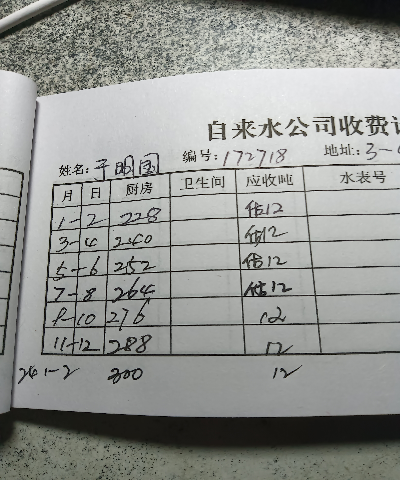 自来水公司收费
姓名:于明国 编号:172718 地址:3-
月 日 厨房 卫生间 应收吨 水表号
1-2 228 估12
3-4 240 估12
5-6 252 估12
7-8 264 估12
9-10 276 12
11-12 288 12
24 1-2 300 12